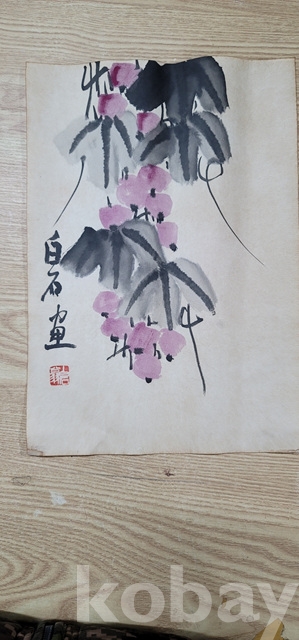 白石画
kobay